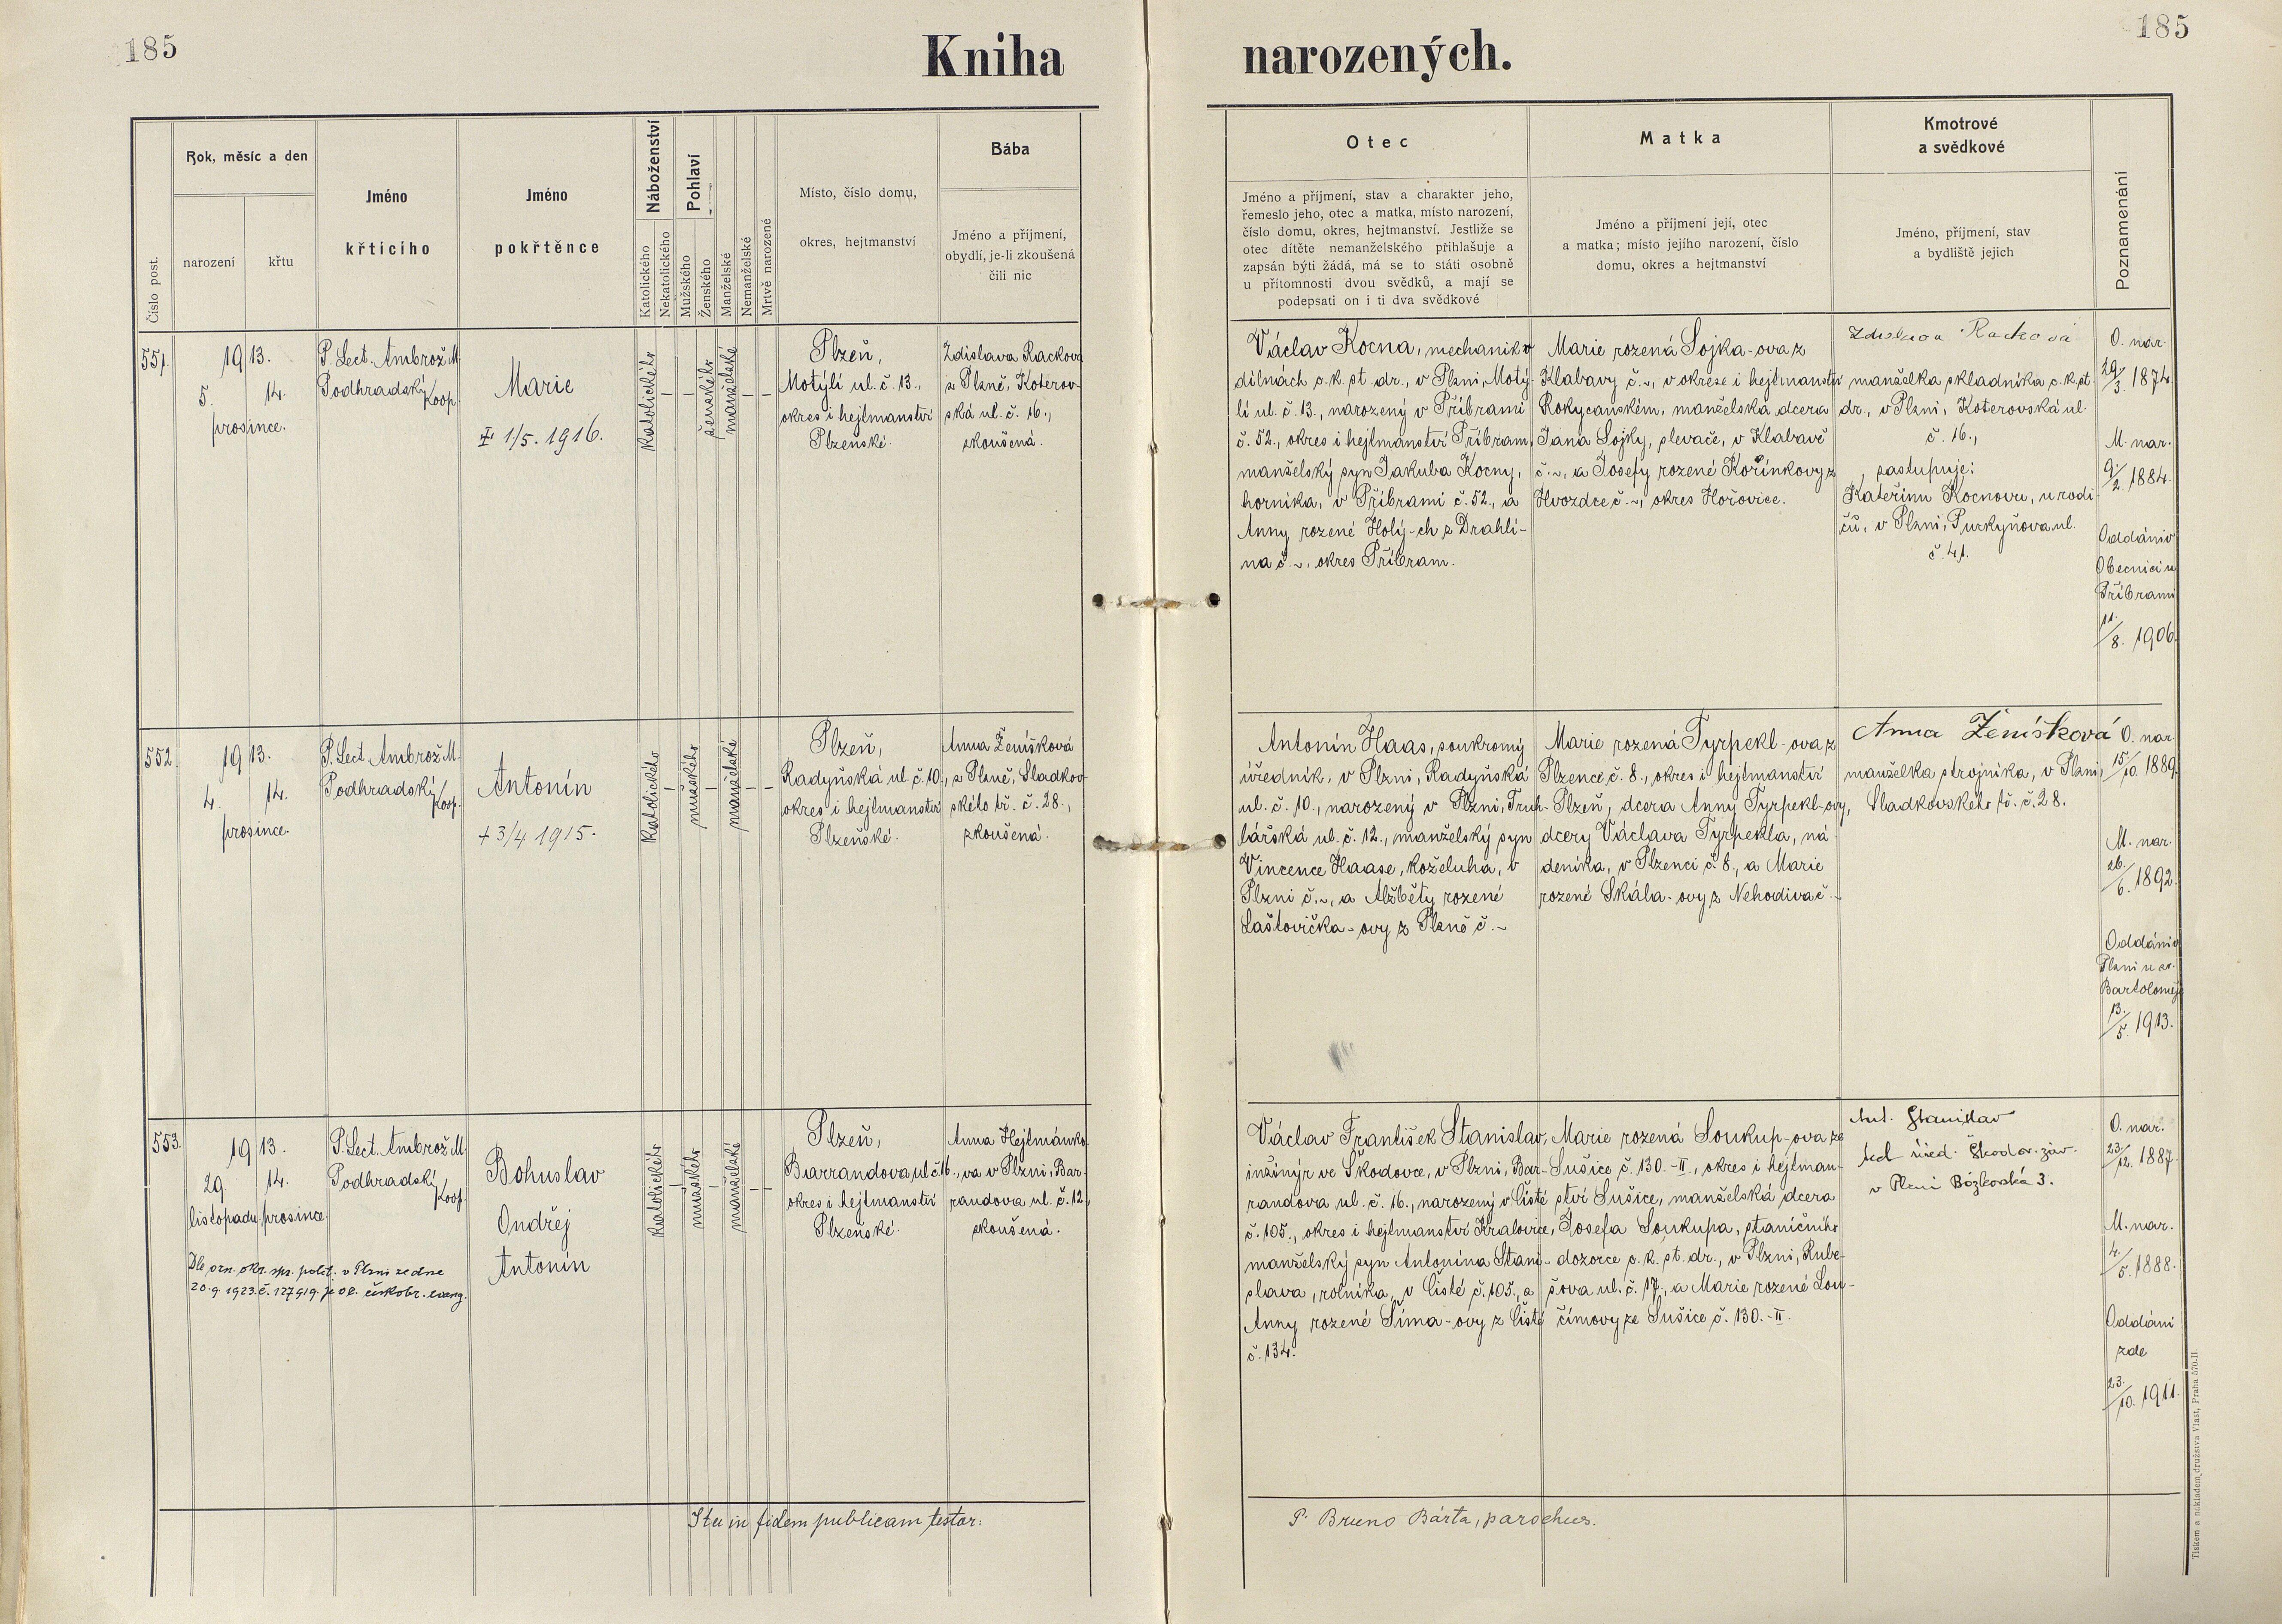 185
185
Kniha narozených.
Číslo post.
Rok, měsíc a den
narození
křtu
Jméno
křtícího
Jméno
pokřtěnce
Náboženství
Katolického
Nekatolického
Pohlaví
Mužského
Ženského
Manželské
Nemanželské
Mrtvě narozené
Místo, číslo domu,
okres, hejtmanství
Bába
Jméno a příjmení,
obydlí, je-li zkoušená
čili nic
Otec
Jméno a příjmení, stav a charakter jeho,
řemeslo jeho, otec a matka, místo narození,
číslo domu, okres, hejtmanství. Jestliže se
otec dítěte nemanželského přihlašuje a
zapsán býti žádá, má se to státi osobně
u přítomnosti dvou svědků, a mají se
podepsati on i ti dva svědkové
Matka
Jméno a příjmení její, otec
a matka; místo jejího narození, číslo
domu, okres a hejtmanství
Kmotrové
a svědkové
Jméno, příjmení, stav
a bydliště jejich
Poznamenání
551.
1913.
5. 14.
prosince.
P. Lect. Ambrož M.
Podhradský
Koop.
Marie
1/5. 1916.
katolického
–
–
ženského
manželské
–
–
Plzeň,
Motýlí ul. č. 13.,
okres i hejtmanství
Plzeňské.
Zdislava Racková
z Plzně, Koterov-
ská ul. č. 16.,
zkoušená.
Václav Kocna, mechanik v
dílnách c. k. st. dr., v Plzni, Motý-
lí ul. č. 13., narozený v Příbrami
č. 52., okres i hejtmanství Příbram,
manželský syn Jakuba Kocny,
horníka, v Příbrami č. 52., a
Anny rozené Holý-ch z Drahlí-
na č. ~, okres Příbram.
Marie rozená Sojka-ova z
Klabavy č. ~, v okrese i hejtmanství
Rokycanském, manželská dcera
Jana Sojky, slevače, v Klabavě
č. ~, a Josefy rozené Kořínkovy z
Hvozdce č. ~, okres Hořovice.
Zdislava Racková
manželka skladníka c. k. st.
dr., v Plzni, Koterovská ul.
č. 16.,
zastupuje:
Kateřinu Kocnovu, u rodi-
čů, v Plzni, Purkyňova ul.
č. 41.
O. nar.
29/3. 1874.
M. nar.
9/2. 1884.
Oddáni v
Obecnici u
Příbrami
11./8. 1906.
552.
1913.
4. 14.
prosince.
P. Lect. Ambrož M.
Podhradský
Koop.
Antonín
+ 3/4 1915.
katolického
–
mužského
–
manželské
–
–
Plzeň,
Radyňská ul. č. 10.,
okres i hejtmanství
Plzeňské.
Anna Ženíšková
z Plzně, Sladkov-
ského tř. č. 28.,
zkoušená.
Antonín Haas, soukromý
úředník, v Plzni, Radyňská
ul. č. 10., narozený v Plzni, Truh-
lářská ul. č. 12., manželský syn
Vincence Haase, koželuha, v
Plzni č. ~, a Alžběty rozené
Laštovička-ovy z Plzně č. ~
Marie rozená Tyrpekl-ova z
Plzence č. 8., okres i hejtmanství
Plzeň, dcera Anny Tyrpekl-ovy,
dcery Václava Tyrpekla, ná-
deníka, v Plzenci č. 8., a Marie
rozené Skála-ovy z Nehodiva č. ~
Anna Ženíšková
manželka strojníka, v Plzni,
Sladkovského tř. č. 28.
O. nar.
15/10. 1889.
M. nar.
26./6. 1892.
Oddáni v
Plzni u sv.
Bartoloměje
13./5. 1913.
553.
1913.
29. 14.
listopadu prosince
P. Lect. Ambrož M.
Podhradský
Koop.
Bohuslav
Ondřej
Antonín
Dle ozn. okr. spr. polit. v Plzni ze dne
20.9.1923. č. 127919. je
katolického
–
mužského
–
manželské
–
–
Plzeň,
Barrandova ul. č. 16.,
okres i hejtmanství
Plzeňské.
Anna Hejtmánko-
va v Plzni, Bar-
randova ul. č. 12.,
zkoušená.
Václav František Stanislav,
inžinýr ve Škodovce, v Plzni, Bar-
randova ul. č. 16., narozený v Čisté
č. 105., okres i hejtmanství Kralovice,
manželský syn Antonína Stani-
slava, rolníka, v Čisté č. 105., a
Anny rozené Šíma-ovy z Čisté
č. 134.
Marie rozená Soukup-ova ze
Sušice č. 130.-II., okres i hejtman-
ství Sušice, manželská dcera
Josefa Soukupa, staničního
dozorce c. k. st. dr., v Plzni, Rube-
šova ul. č. 17., a Marie rozené Lou-
čímovy ze Sušice č. 130.-II.
Ant. Stanislav
úřed. Škodov. záv.
v Plzni 3.
O. nar.
23./12. 1887.
M. nar.
4./5. 1888.
Oddáni
zde
23./10. 1911.
Ita in fidem publicam testor:
P. Bruno Bárta, parochus.
Tiskem a nákladem družstva Vlast, Praha 570-II.